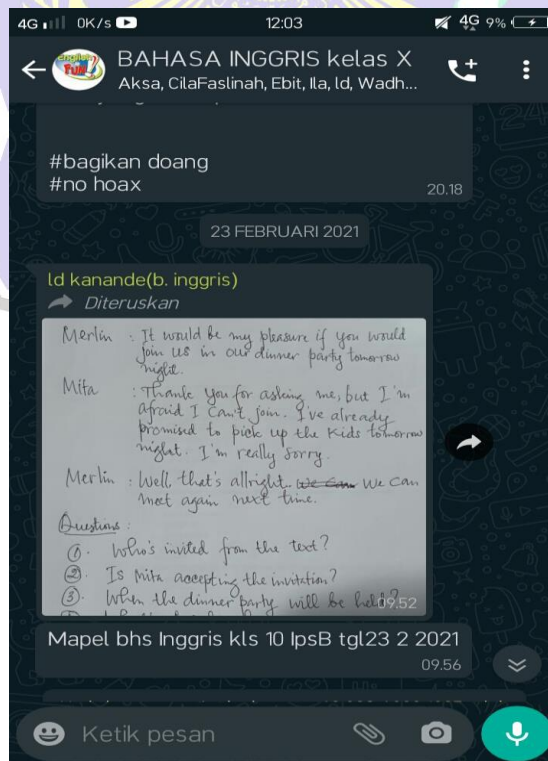 4G 0K/s 12:03 4G 9%
English Fun
BAHASA INGGRIS kelas X
Aksa, CilaFaslinah, Ebit, Ila, ld, Wadh...
#bagikan doang
#no hoax
20.18
23 FEBRUARI 2021
ld kanande(b. inggris)
Diteruskan
Merlin : It would be my pleasure if you would
join us in our dinner party tomorrow
night.
Mita : Thank you for asking me, but I'm
afraid I can't join. I've already
promised to pick up the kids tomorrow
night. I'm really sorry.
Merlin : Well, that's allright. We can We can
meet again next time.
Questions :
1. Who's invited from the text?
2. Is Mita accepting the invitation?
3. When the dinner party will be held?
09.52
Mapel bhs Inggris kls 10 IpsB tgl23 2 2021
09.56
Ketik pesan